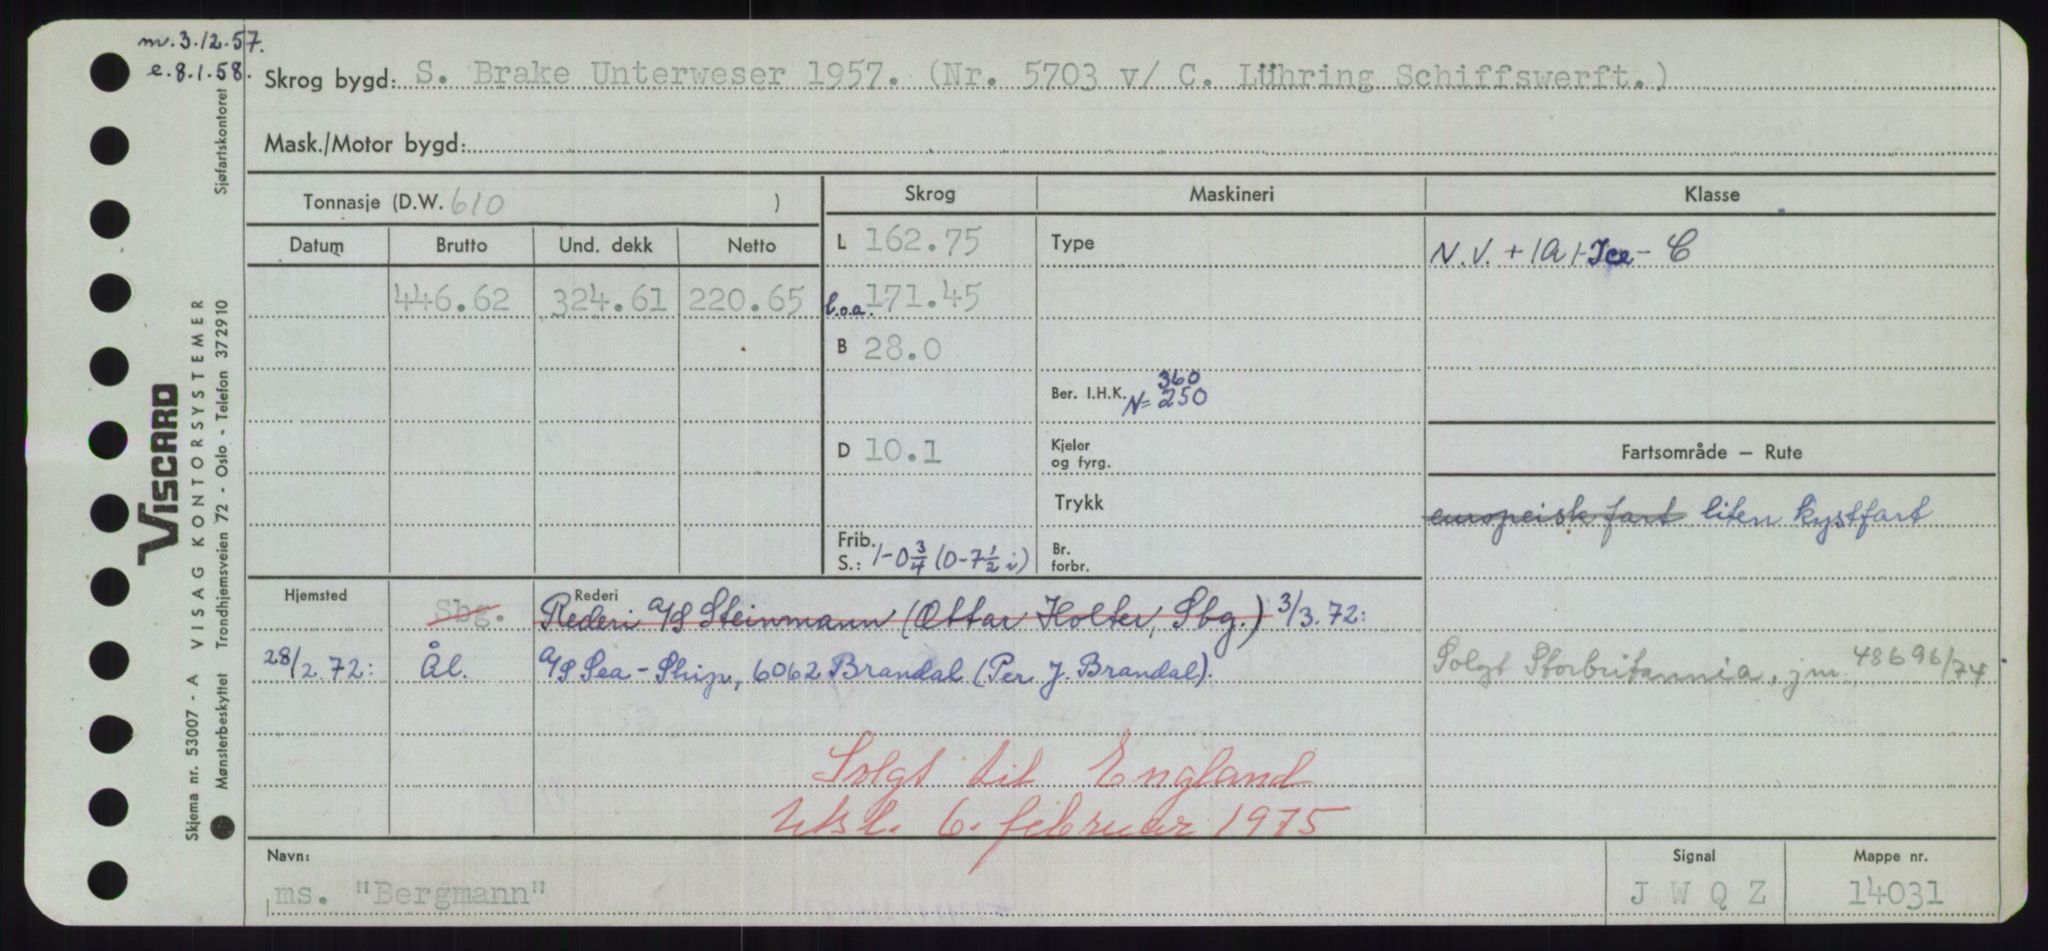 m. 3.12.57.
e. 8.1.58.
Skrog bygd: S. Brake Unterweser 1957. (Nr. 5703 v/ C. Lühring Schiffswerft.)
Mask./Motor bygd:
Tonnasje (D.W. 610 )
Skrog Maskineri Klasse
Datum Brutto Und. dekk Netto
L 162.75 Type N.V. + 1A1-Ice-C
446.62 324.61 220.65 l.o.a. 171.45
B 28.0
360
Ber. I.H.K. N= 250
D 10.1 Kjeler
og fyrg.
Fartsområde — Rute
Trykk
europeisk fart liten kystfart
Frib.
S.: 1-0 3/4 (0-7 1/2 i)
Br.
forbr.
Hjemsted Rederi
Sbg. Rederi A/S Steinmann (Ottar Holter, Sbg.) 3/3.72:
28/2.72: Ål. A/S Sea-Ship, 6062 Brandal (Per J. Brandal).
Solgt Storbritannia, jnr. 48696/74
Solgt til England
Utsl. 6. februar 1975
Navn: Signal Mappe nr.
ms. "Bergmann" J W Q Z 14031
Sjøfartskontoret
VISCARD
VISAG KONTORSYSTEMER
Skjema nr. 53007 - A
Mønsterbeskyttet Trondhjemsveien 72 - Oslo - Telefon 372910